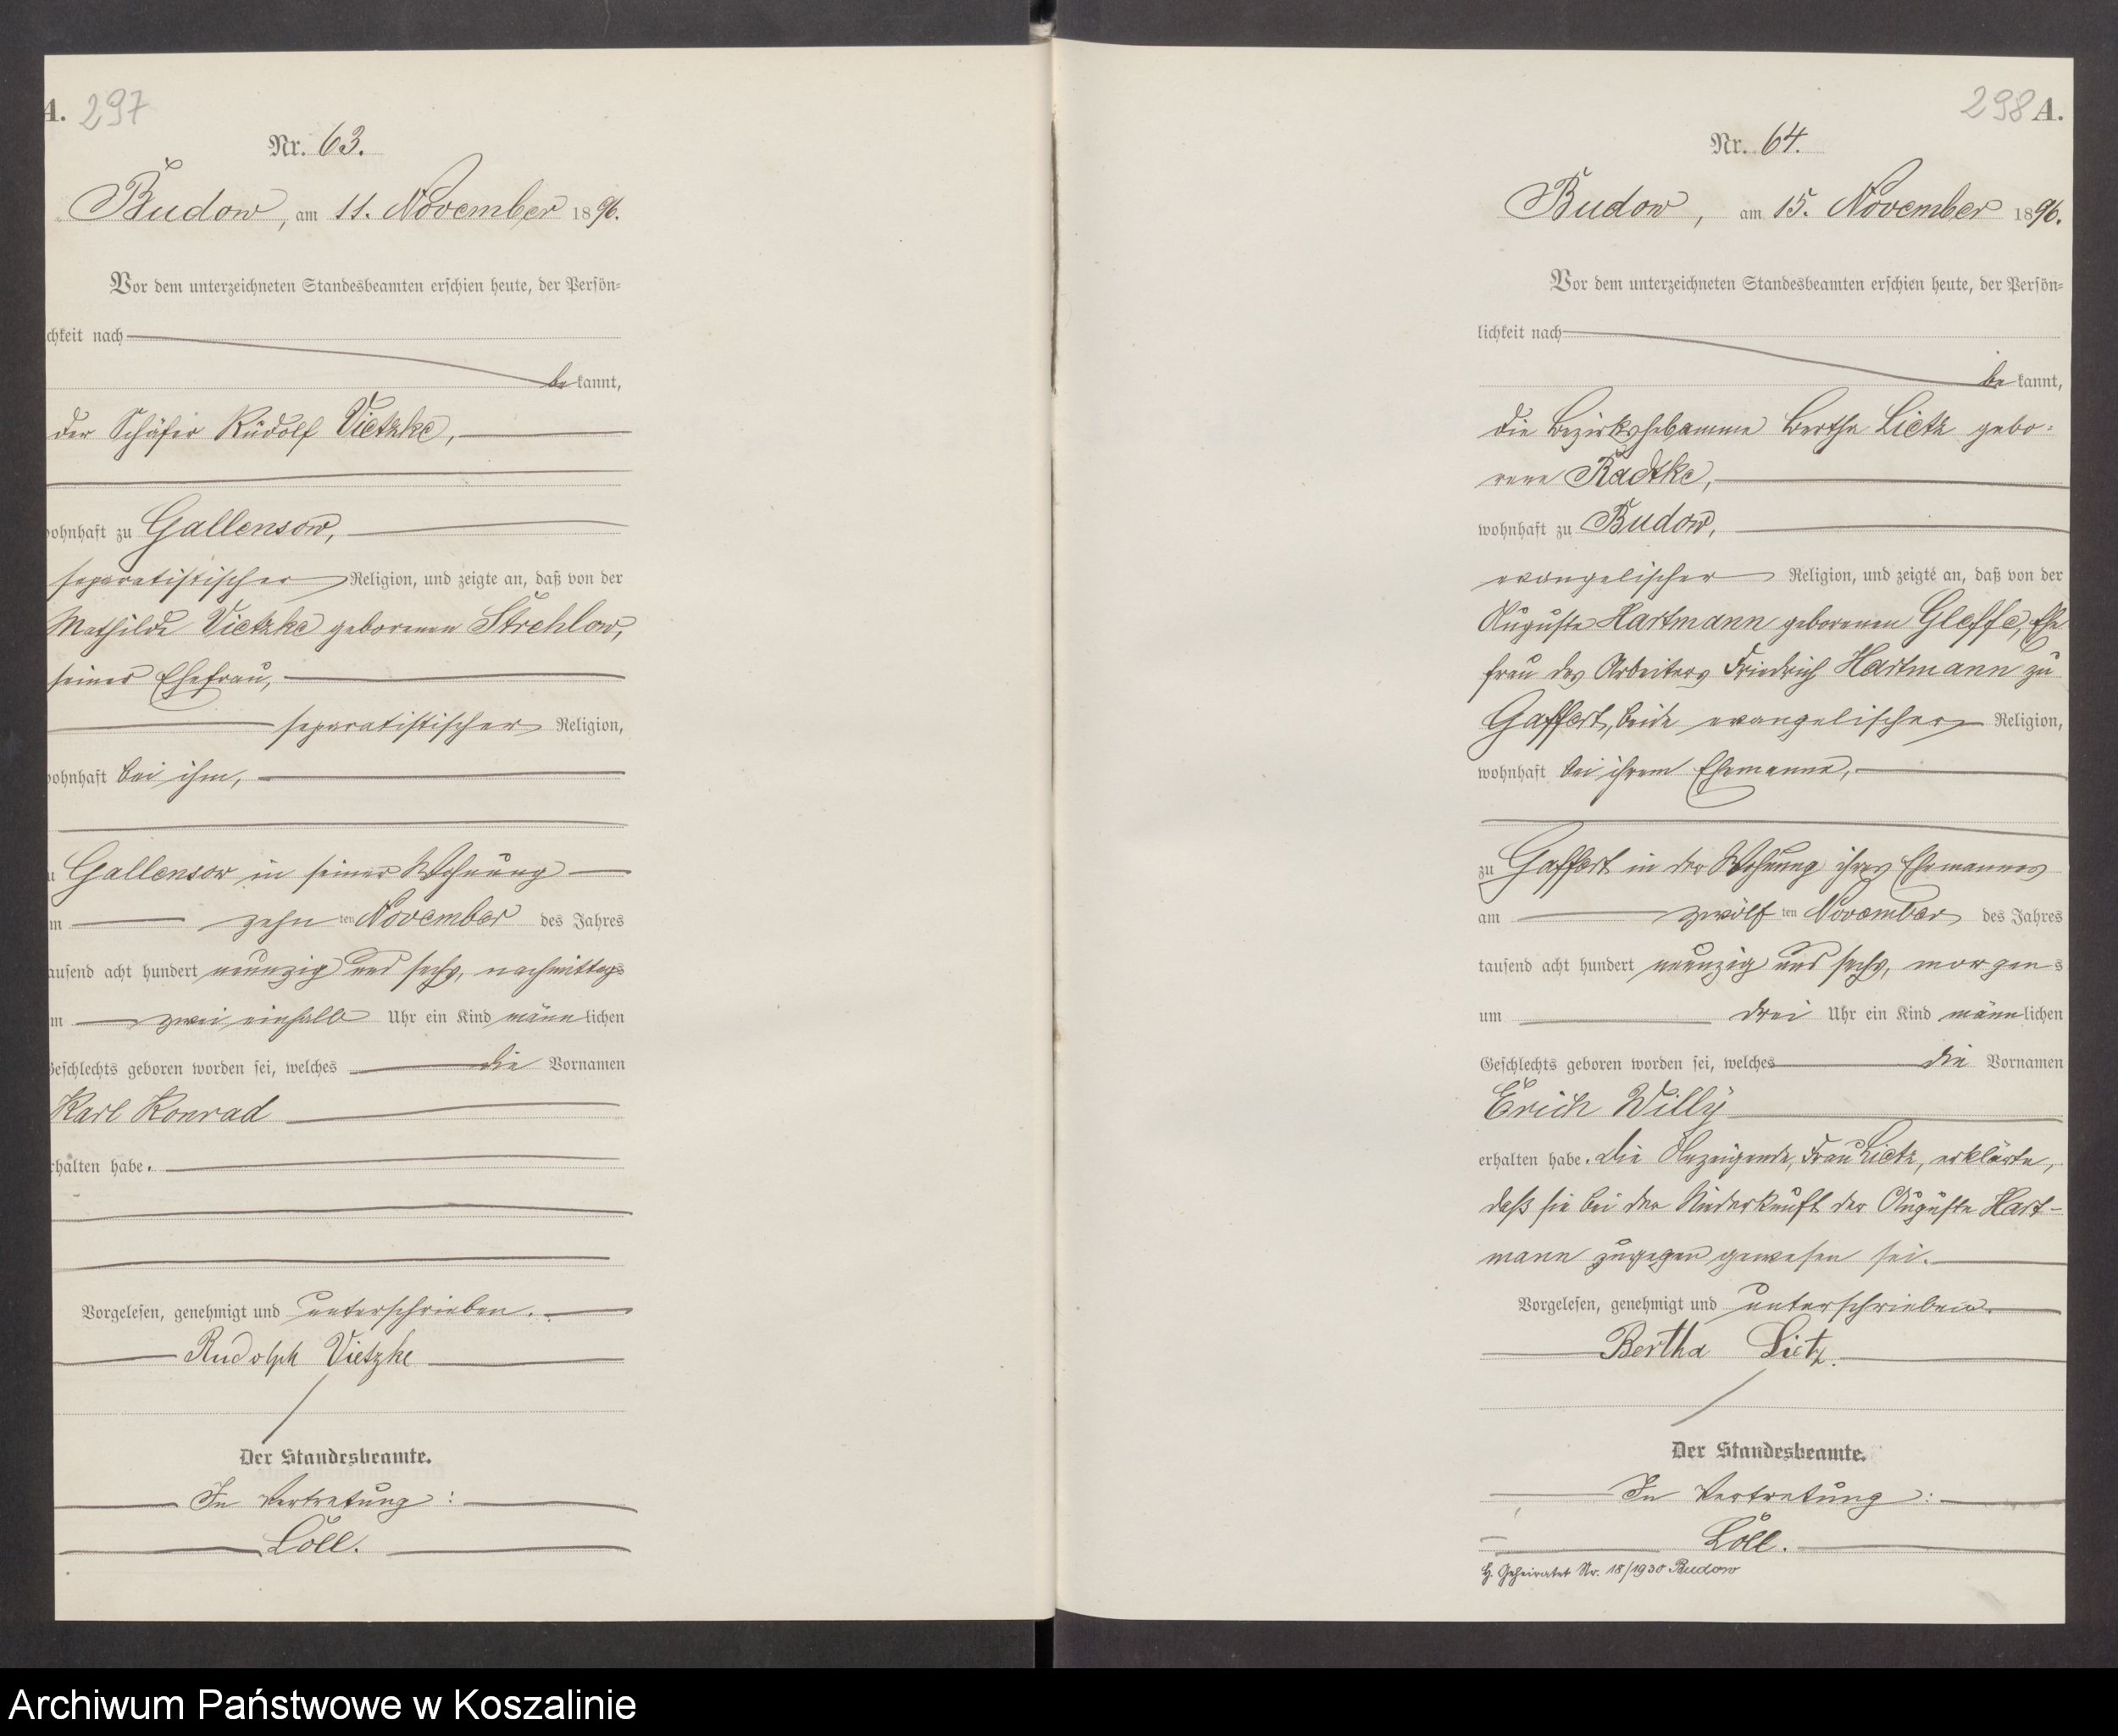 A. 297
Nr. 63.
Budow, am 11. November 1896.
Vor dem unterzeichneten Standesbeamten erschien heute, der Persön-
chkeit nach
be kannt,
der Schäfer Rudolf Vietzke,
ohnhaft zu Gallensow,
separatistischer Religion, und zeigte an, daß von der
Mathilde Vietzke geborenen Strehlow,
seiner Ehefrau,
separatistischer Religion,
ohnhaft bei ihm,
u Gallensow in seiner Wohnung
m zehn ten November des Jahres
ausend acht hundert neunzig und sechs, nachmittags
m zwei einhalb Uhr ein Kind männlichen
Geschlechts geboren worden sei, welches die Vornamen
Karl Konrad
rhalten habe.
Vorgelesen, genehmigt und unterschrieben.
Rudolph Vietzke
Der Standesbeamte.
In Vertretung:
Löll.
298 A.
Nr. 64.
Budow, am 15. November 1896.
Vor dem unterzeichneten Standesbeamten erschien heute, der Persön-
lichkeit nach
be kannt,
die Bezirkshebamme Bertha Lietz gebo-
rene Radtke,
wohnhaft zu Budow,
evangelischer Religion, und zeigte an, daß von der
Auguste Hartmann geborenen Gleffe, Ehe
frau des Arbeiters Friedrich Hartmann zu
Gaffert, beide evangelischer Religion,
wohnhaft bei ihrem Ehemanne,
zu Gaffert in der Wohnung ihres Ehemannes
am zwölf ten November des Jahres
tausend acht hundert neunzig und sechs, morgens
um drei Uhr ein Kind männlichen
Geschlechts geboren worden sei, welches die Vornamen
Erich Willy
erhalten habe. Die Anzeigende, Frau Lietz, erklärte,
daß sie bei der Niederkunft der Auguste Hart-
mann zugegen gewesen sei.
Vorgelesen, genehmigt und unterschrieben.
Bertha Lietz.
Der Standesbeamte.
In Vertretung:
Löll.
H. Geheiratet Nr. 18/1930 Budow
Archiwum Państwowe w Koszalinie